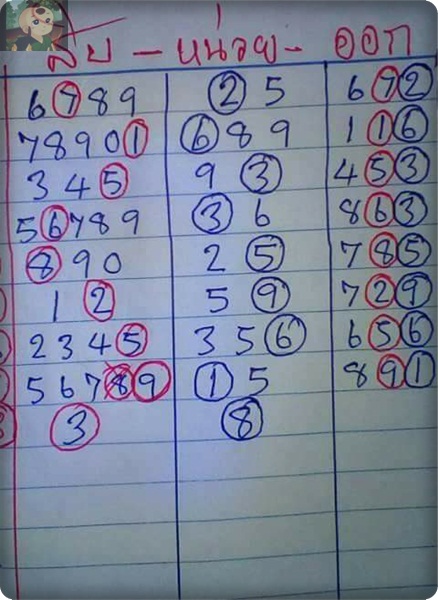 สิบ - หน่วย - ออก
6 7 8 9 2 5 6 7 2
7 8 9 0 1 6 8 9 1 1 6
3 4 5 9 3 4 5 3
5 6 7 8 9 3 6 8 6 3
8 9 0 2 5 7 8 5
1 2 5 9 7 2 9
2 3 4 5 3 5 6 6 5 6
5 6 7 8 9 1 5 8 9 1
3 8